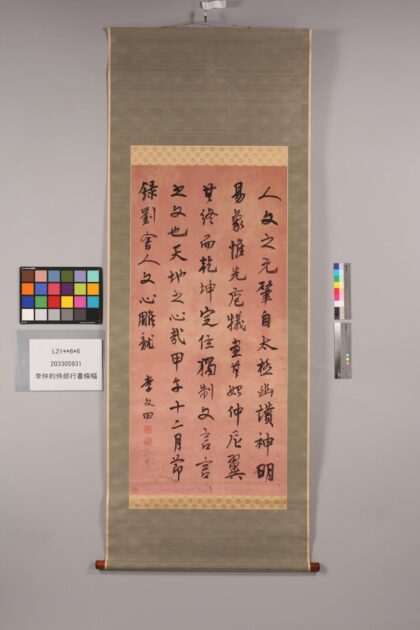 人文之元肇自太極幽讚神明
易象惟先庖犧畫其始仲尼翼
其終而乾坤定位獨制文言言
之文也天地之心哉甲午十二月節
錄劉舍人文心雕龍 李文田
L21**6*6
203305931
李仲約侍郎行書條幅